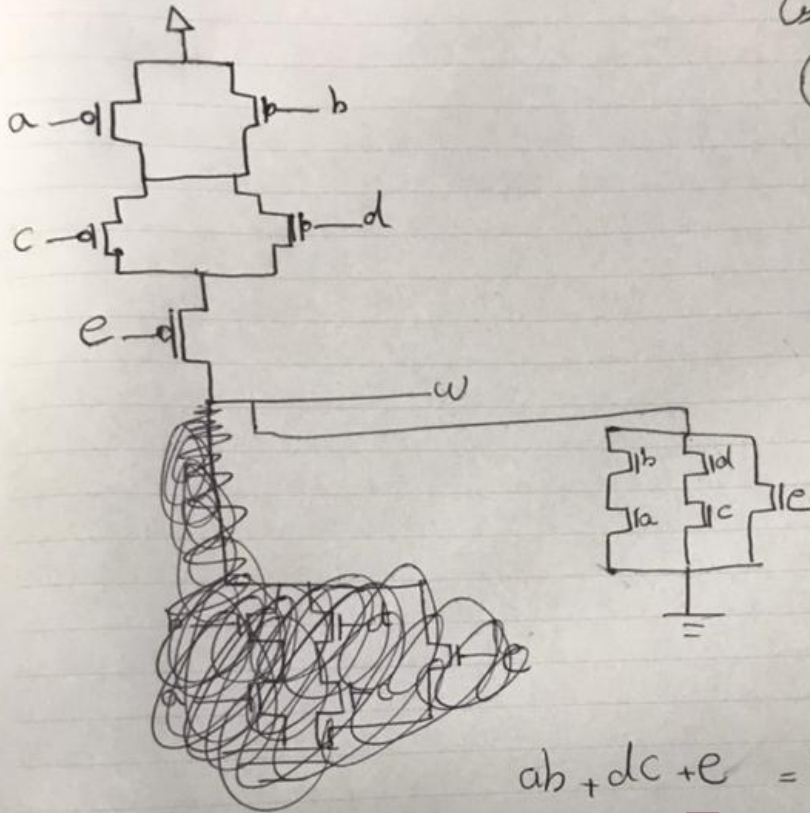 a
b
c
d
e
w
b d
e
a c
ab + dc + e =